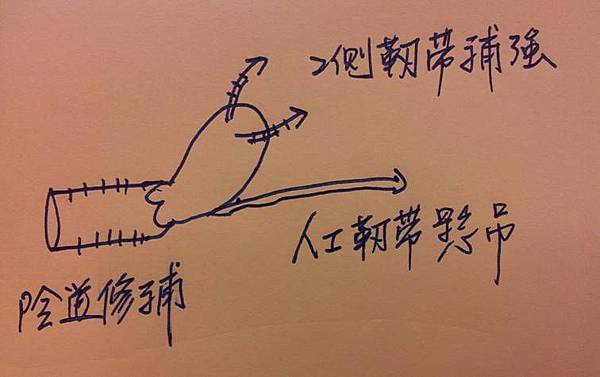 2側韌帶補強
人工韌帶懸吊
陰道修補